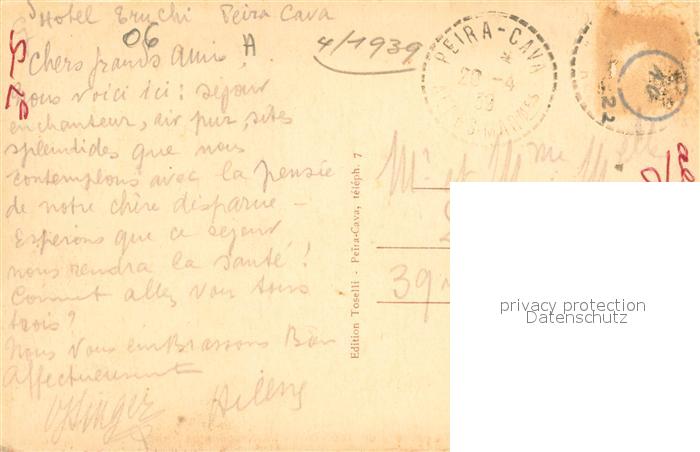 Hotel Peira Cava
06 A 4/1939
Chers grands Amis!
Nous voici ici : séjour
enchanteur, air pur, sites
splendides que nous
contemplons avec la pensée
de notre chère disparue –
Espérons que ce séjour
nous rendra la santé!
Comment allez vous tous
trois?
Nous vous embrassons Bien
Affectueusement
Hélène
Edition Toselli - Peïra-Cava, téléph. 7
PEIRA-CAVA
20 -4
39
MARITIMES
Mr et Mme
39
privacy protection
Datenschutz